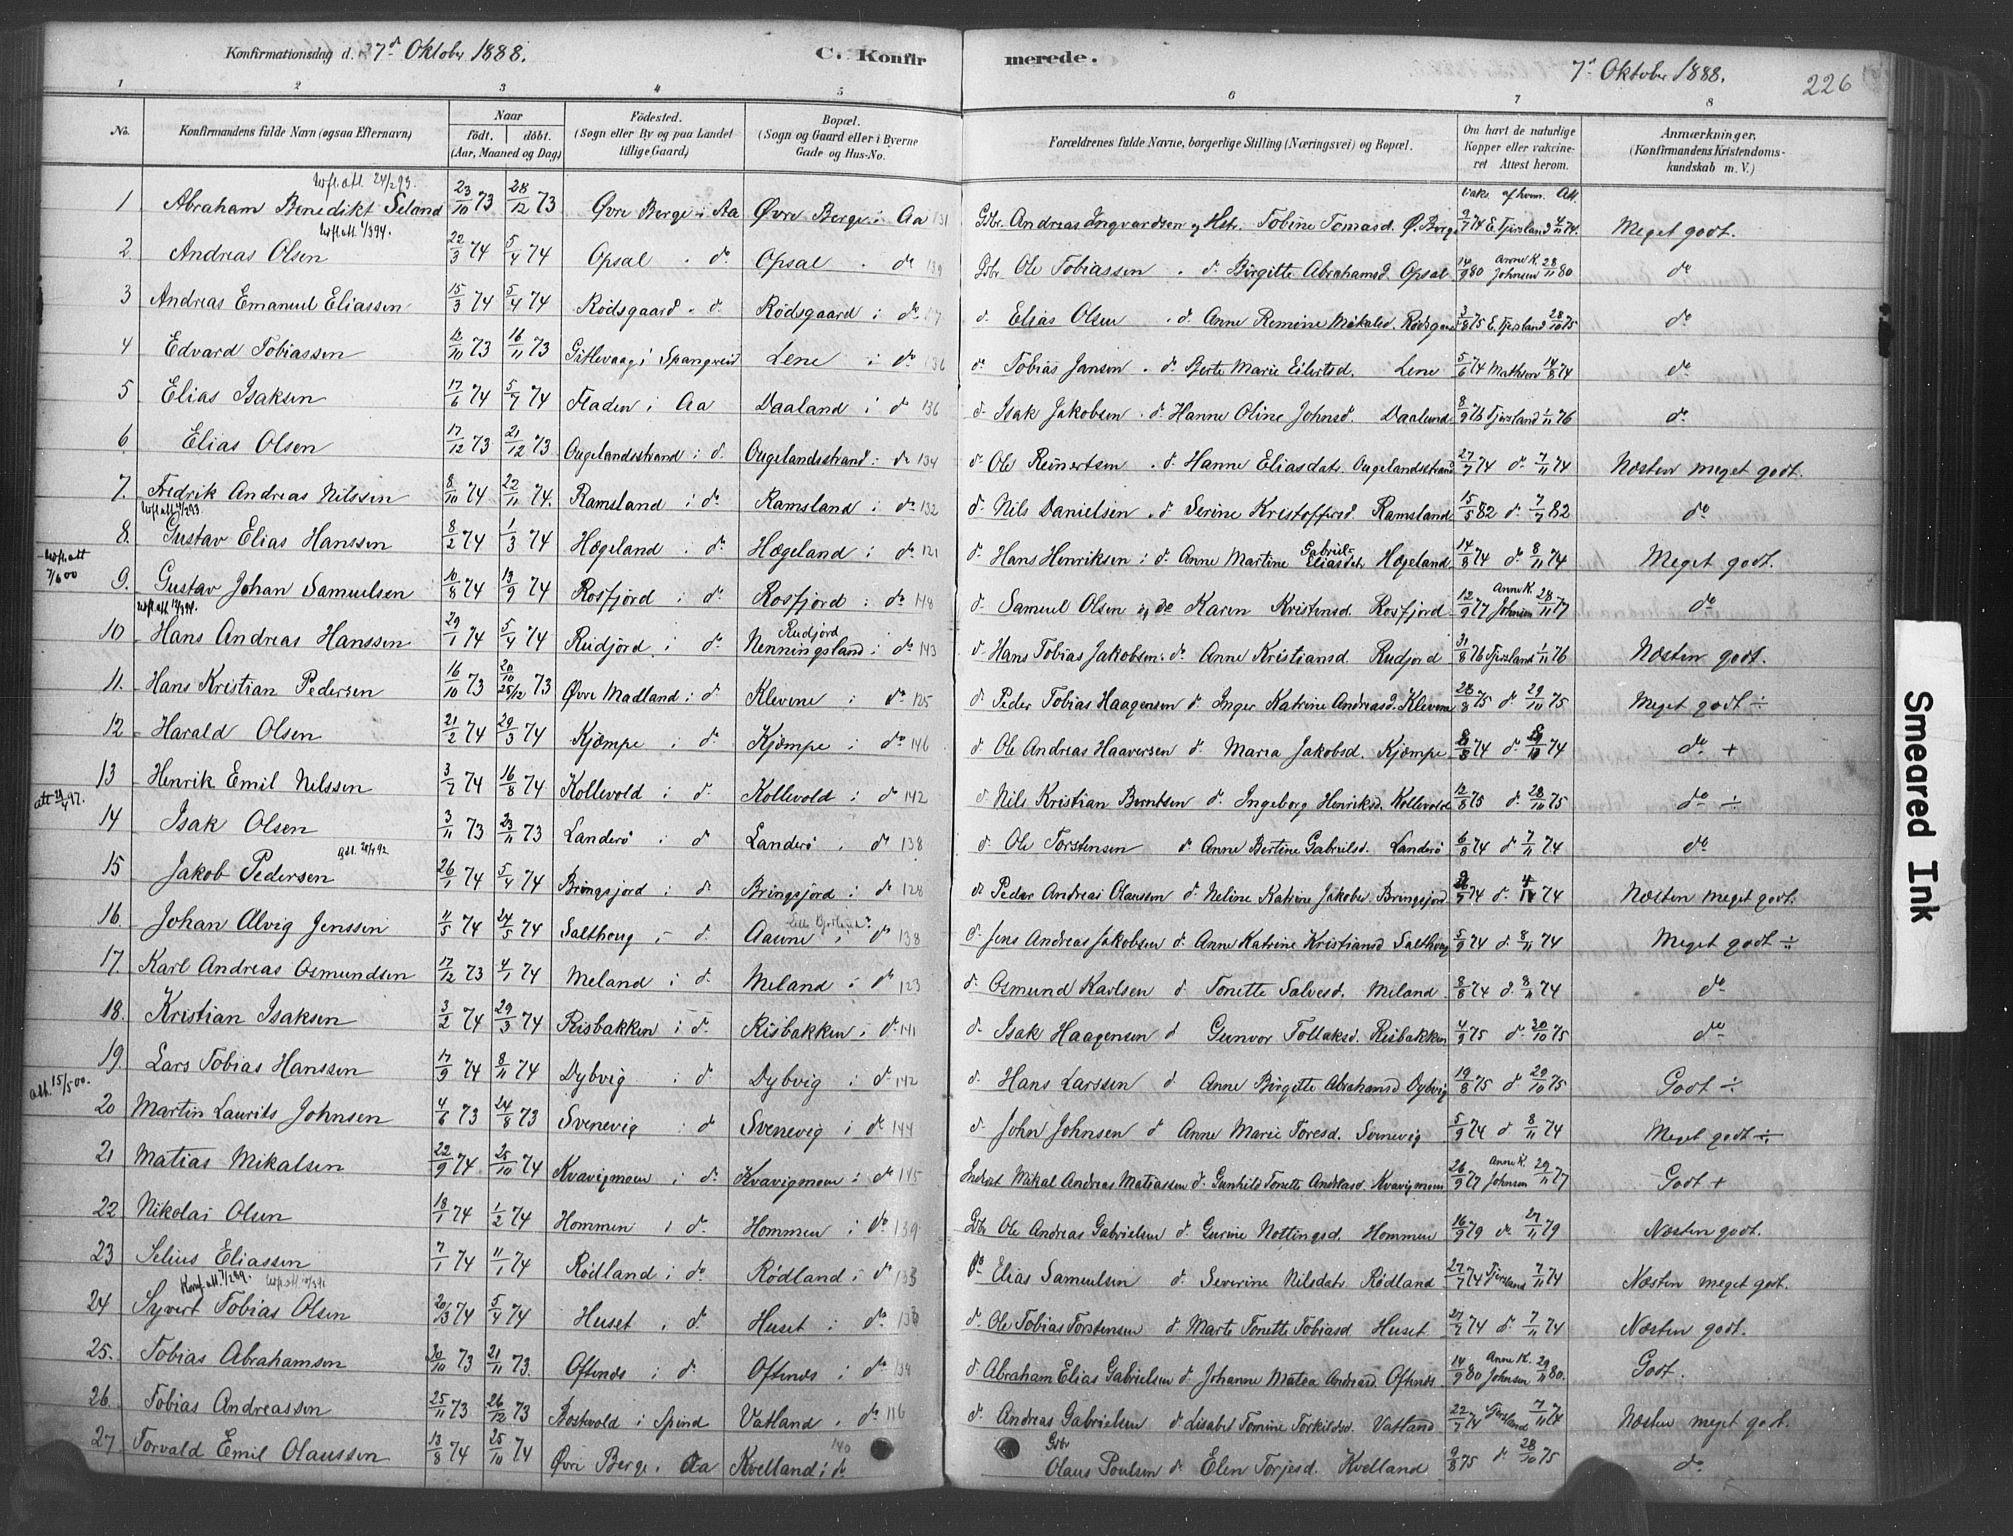 Konfirmationsdag d. 7de Oktober 1888. C. Konfirmerede. 7de Oktober 1888. 226
1 2 3 4 5 6 7 8
No. Konfirmandens fulde Navn (ogsaa Efternavn) Naar født. døbt. (Aar, Maaned og Dag) Fødested. (Sogn eller By og paa Landet tillige Gaard) Bopæl. (Sogn og Gaard eller i Byerne Gade og Hus-No. Forældrenes fulde Navne, borgerlige Stilling (Næringsvei) og Bopæl. Om havt de naturlige Kopper eller vaccineret Attest herom. Anmærkninger, (Konfirmandens Kristendomskundskab m. V.)
1 Abraham Benedikt Seland 23/10 73 28/12 73 Øvre Berge i Aa Øvre Berge i Aa 131 Gbr. Andreas Ingvardsen og Hstr. Tobine Tomasd. Ø. Berge 9/7 74 E. Tjørsland 2/11 74. Meget godt.
2 Andreas Olsen 22/3 74 5/4 74 Opsal do Opsal do 139 Gbr. Ole Tobiassen d. Birgitte Abrahamsd. Opsal 14/9 80 Anne K. Johnsen 28/11 80 do
3 Andreas Emanuel Eliassen 15/3 74 5/4 74 Rødsgaard d. Rødsgaard i do d. Elias Olsen d. Anne Romine Mikalsd. Rødsgaard 3/8 75 E. Tjørsland 28/10 75 do
4 Edvard Tobiassen 12/10 73 16/11 73 Gitlevaag i Spangereid Lene i do 136 d. Tobias Jansen d. Berte Marie Eilertsd. Lene 5/6 74 Mathson 14/8 74 do
5 Elias Isaksen 17/6 74 5/7 74 Fladen i Aa Daaland i do 136 d. Isak Jakobsen d. Hanne Oline Johnsd. Daaland 8/9 76 Tjørsland 1/11 76 do
6. Elias Olsen 17/12 73 21/12 73 Ougelandsstrand i d. Ougelandsstrand i do 134 d. Ole Reinertsen d. Hanne Eliasdatr. Ougelandsstrand 27/7 74 do 7/11 74 Næsten meget godt.
7. Fredrik Andreas Nilssen 8/10 74 22/11 74. Ramsland i do Ramsland i do 132 d. Nils Danielsen d. Serine Kristoffersd. Ramsland 15/5 82 do 7/7 82 do
8. Gustav Elias Hanssen 8/2 74 1/3 74 Hægeland i do Hægeland i do 121 d. Hans Henriksen i d. Anne Martine Gabriel- Eliasdtr. Hægeland 14/8 74 do 8/11 74 Meget godt.
9. Gustav Johan Samuelsen 10/8 74 13/9 74 Rosfjord i do Rosfjord i do 148 d. Samuel Olsen og do Karen Kristensd. Rosfjord 12/9 77 Anne K. Johnsen 28/11 77 do
10 Hans Andreas Hanssen 29/1 74 5/4 74 Rudjord i do Rudjord Nenningsland i do 143 d. Hans Tobias Jakobsen do Anne Kristiansd. Rudjord 31/8 76 Tjørsland 1/11 76 Næsten godt.
11. Hans Kristian Pedersen 16/10 73 20/10 25/12 73 Øvre Madland i do Klevene i do 125 d. Peder Tobias Haagensen d. Inger Katrine Andreasd. Klevene 28/8 75 d. 29/10 75 Meget godt ÷
12 Harald Olsen 21/2 74 29/3 74 Kjæmpe i do Kjæmpe i do 146 d. Ole Andreas Haaversen d. Maria Jakobsd. Kjæmpe 74 do 74 do +
13 Henrik Emil Nilssen 3/7 74 16/8 74 Kollevold i do Kollevold i do 142 d. Nils Kristian Berntsen d. Ingeborg Henriksd. Kollevold 12/8 75 d. 28/10 75 do ÷
14 Isak Olsen 3/11 73 23/11 73 Landerø i do Landerø do 138 d. Ole Torstensen d. Anne Bertine Gabrielsd. Landerø 6/8 74 d. 7/11 74 do
15 Jakob Pedersen 26/1 74 5/4 74 Bringsjord i do Bringsjord i do 128 d. Peder Andreas Olaussen d. Neline Katrine Jakobsd. Bringsjord 74 d. 74 Næsten meget godt.
16. Johan Alvig Jenssen 11/5 74 24/5 74 Salthoug i d. Aavne i do 138 d. Jens Andreas Jakobsen d. Anne Katrine Kristiansd Salthoug 5/9 74 d. 8/11 74 Meget godt ÷
17. Karl Andreas Osmundsen 17/12 73 4/1 74 Meland i d. Meland i do 123 d. Osmund Karlsen d. Tonette Salvesd. Meland 8/8 74 d. 8/11 74 do
18. Kristian Isaksen 3/2 74 29/3 74 Risbakken i d. Risbakken i do 141 d. Isak Haagensen d Gunvor Tollaksd. Risbakken 4/9 75 d. 30/10 75 do
19. Lars Tobias Hanssen 17/9 74 8/11 74 Dybvig i d Dybvig i do 142 d. Hans Larssen d Anne Birgitte Abrahamsd Dybvig 19/8 75 d 29/10 75 Godt ÷
20 Martin Laurits Johnsen 4/6 73 24/8 73 Svenevig i do Svenevig i do 144 d. John Johnsen d Anne Marie Toresd. Svenevig 5/9 74 d. 8/11 74 Meget godt ÷
21 Matias Mikalsen 22/9 74 25/10 74 Kvavigmoen i d. Kvavigmoen i do 145 Inderst Mikal Andreas Matiassen d. Gunhild Tonette Andreasd. Kvavigmoen 26/9 77 Anne K. Johnsen 29/11 77 Godt +
22 Nikolai Olsen 18/1 74 1/2 74 Hommen i do Hommen i do 139 Gbr Ole Andreas Gabrielsen d. Gurine Nottingsd. Hommen 16/9 79 do 27/11 79 Næsten godt.
23 Selius Eliassen 7/1 74 11/1 74 Rødland i do Rødland i do 133 do Elias Samuelsen d. Severine Nilsdatr. Rødland 27/7 74 Tjørsland 7/11 74 Næsten meget godt.
24 Syvert Tobias Olsen 20/3 74 5/4 74 Huset i d. Huset i do 133 d. Ole Tobias Torstensen d. Marte Tonette Tobiasd Huset 27/7 74 d. 7/11 74 Næsten godt.
25. Tobias Abrahamsen 20/10 73 21/11 73. Oftenes i d. Oftenes i do 134 d. Abraham Elias Gabrielsen d. Johanne Matea Andreasd. Oftenes 14/9 80 Anne K. Johnsen 29/11 80. Godt.
26. Tobias Andreassen 25/11 73 26/12 73 Bostvold i Spind Vatland i do 116 d. Andreas Gabrielsen d. Lisabet Tomine Torkildsd. Vatland 22/7 74 Tjørsland 7/11 74 Næsten meget godt.
27 Torvald Emil Olaussen 13/8 74 25/10 74 Øvre Berge i Aa Kvelland i do 140 Gbr Olaus Poulsen d. Elen Torjesd. Kvelland 9/8 75 d. 28/10 75 do
Smeared Ink